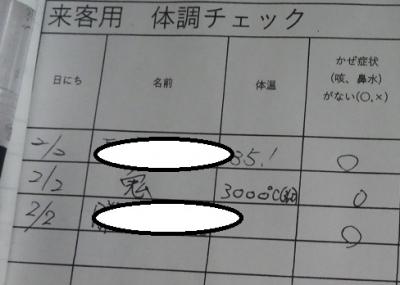 来客用 体調チェック
日にち 名前 体温 かぜ症状
(咳、鼻水)
がない(○,×)
2/2 35.1 ○
2/2 鬼 3000℃ ○
2/2 ○